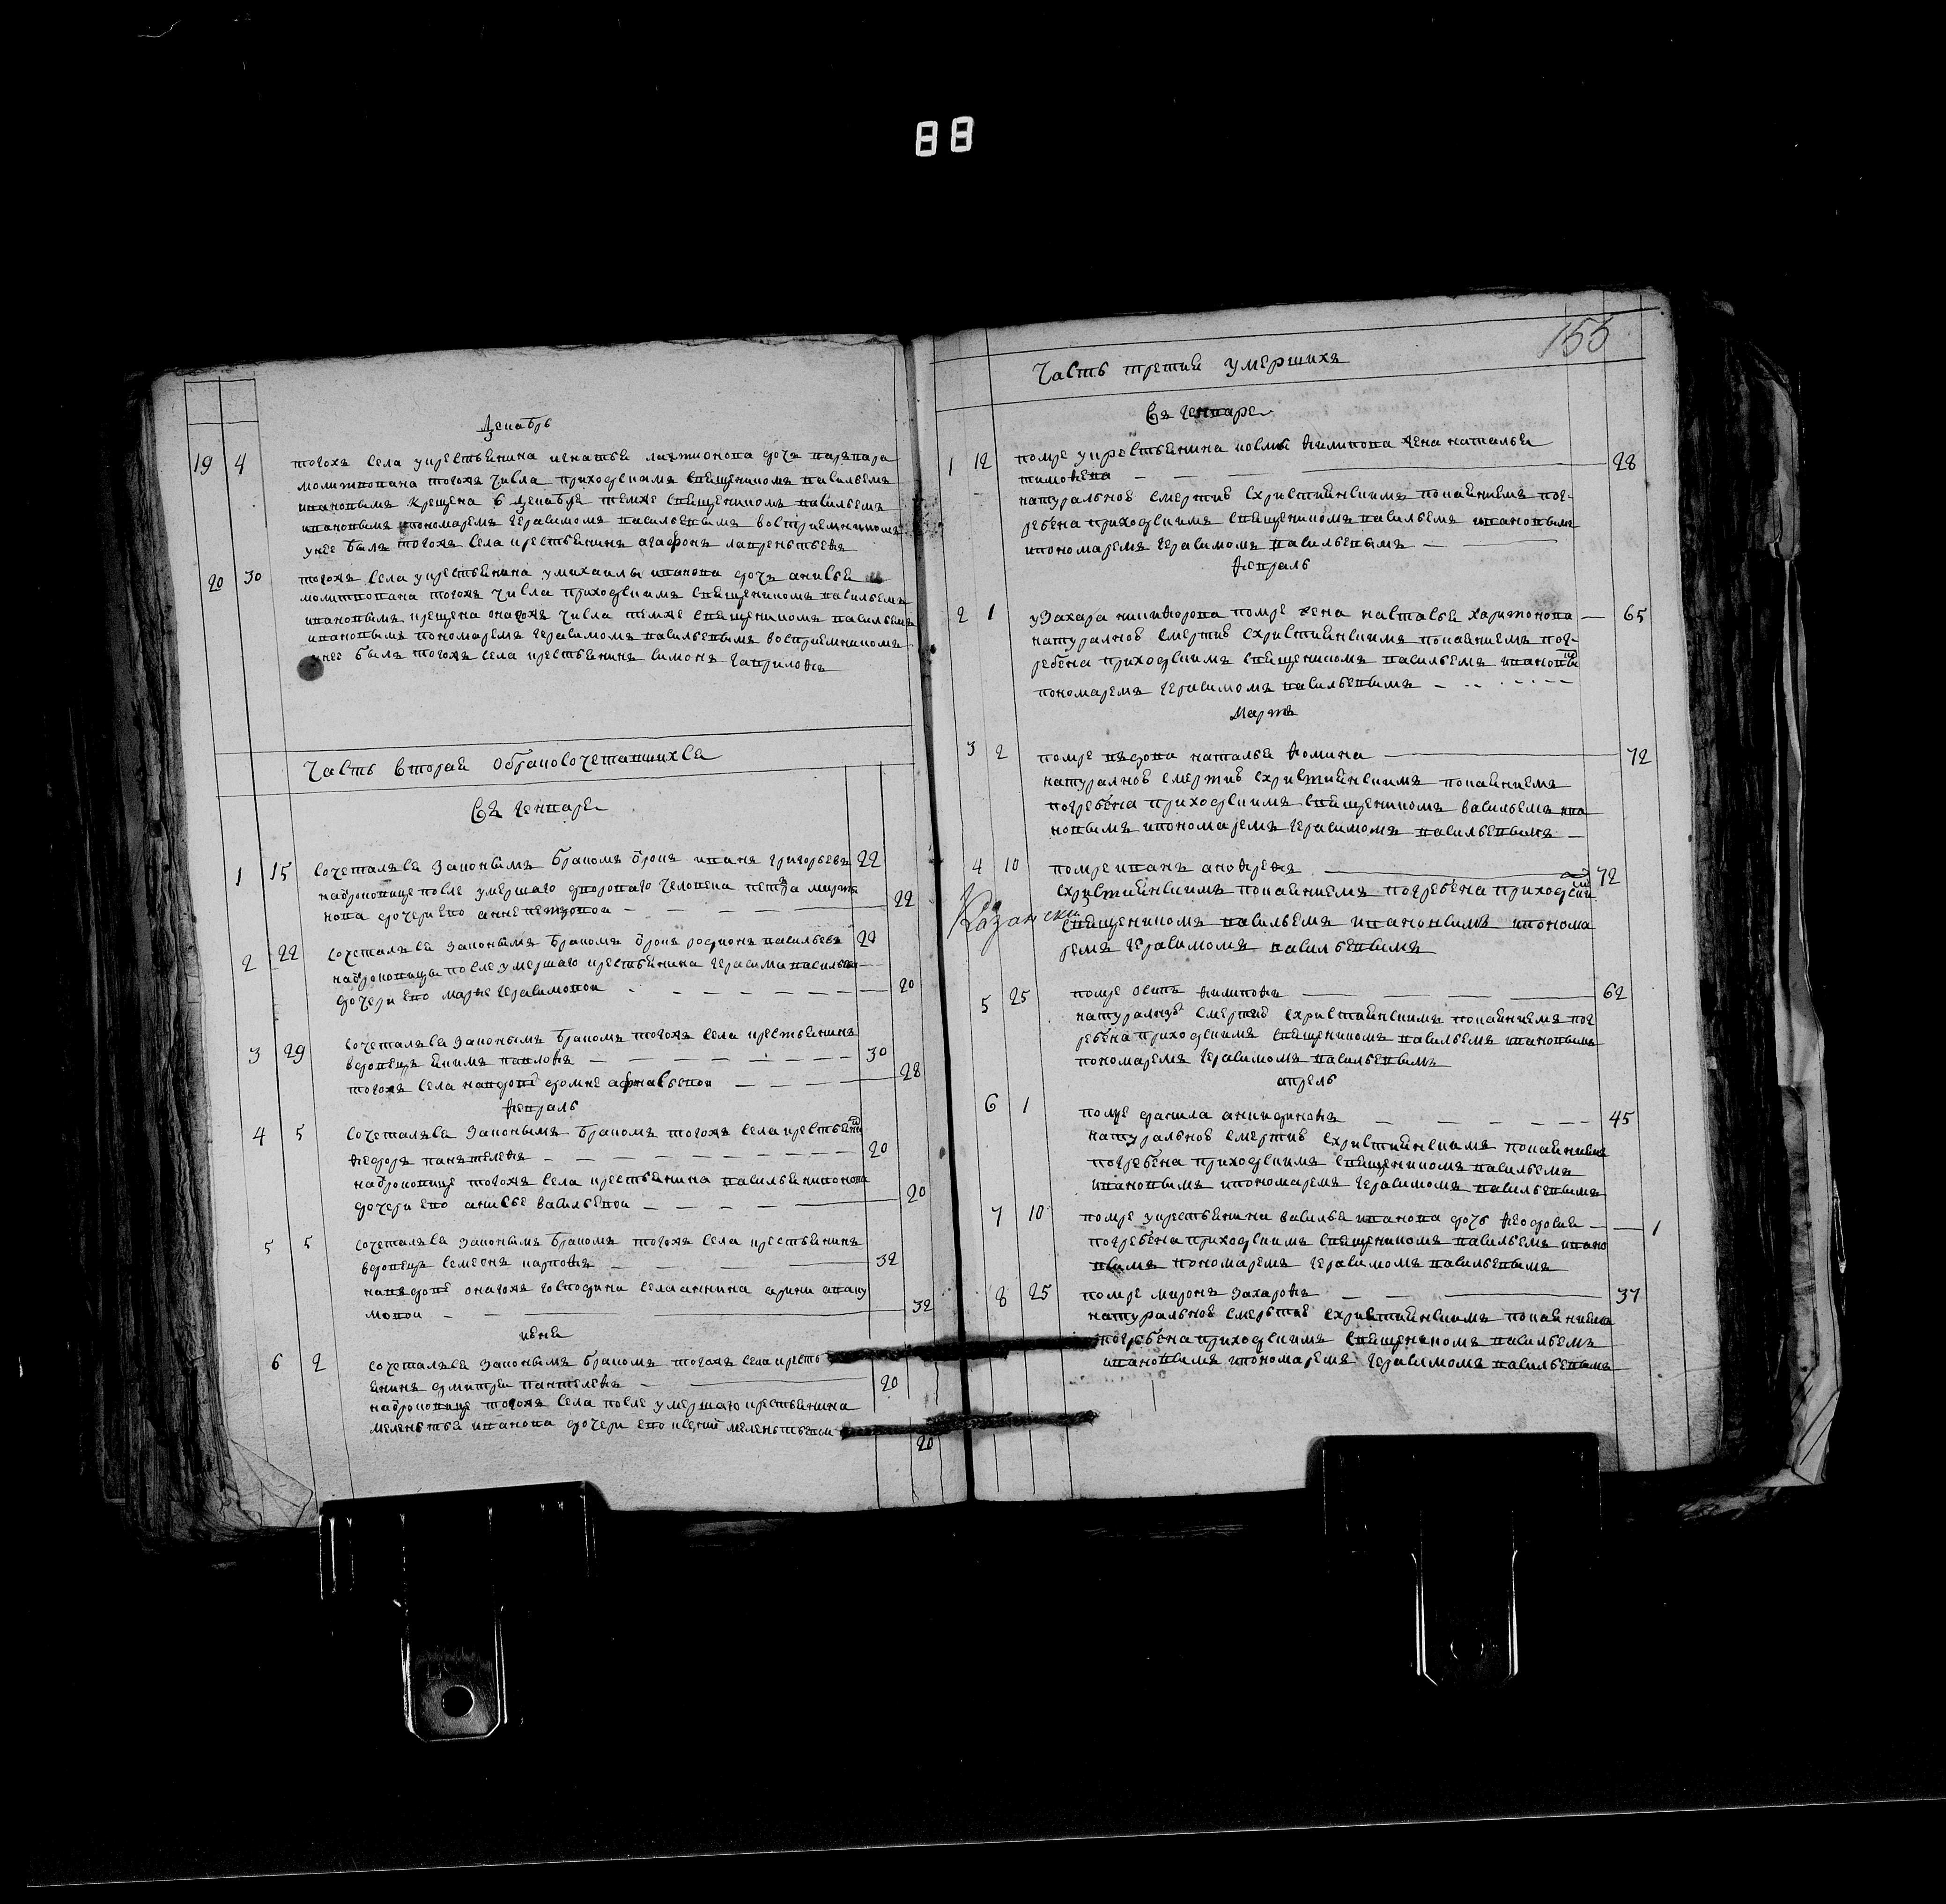 88
Декабрь
19 4 тогожъ села у крестьянина игнатья лактионова дочь варъвара
молитвована тогожъ числа приходскимъ священикомъ васильемъ
ивановымъ крещена 6 декабря темже священикомъ васильемъ
ивановымъ ипономаремъ герасимомъ васильевымъ восприемникомъ
унее былъ тогожъ села крестьянинъ агафонъ лаврентьевъ
20 30 тогожъ села у крестьянина умихаилы иванова дочь анисья
молитвована тогожъ числа приходскимъ священикомъ васильемъ
ивановымъ крещена оногожъ числа темже священикомъ васильемъ
ивановымъ пономаремъ герасимомъ васильевымъ восприемникомъ
унее былъ тогожъ села крестьянинъ симонъ гавриловъ
Часть вторая обракосочетавшихся
Въ генваре
1 15 сочетался законымъ бракомъ отрокъ иванъ григорьевъ 22
наотроковице после умершаго двороваго человека петра
нова дочери ево анне петровой 22
2 22 сочетался законымъ бракомъ отрокъ родионъ васильевъ
наотроковицы после умершаго крестьянина герасима васильева
дочери ево марье герасимовой 20
3 29 сочетался законымъ бракомъ тогожъ села крестьянинъ
вдовецъ екимъ павловъ 30
тогожъ села навдове домне афонасьевой 28
февраль
4 5 сочетался законымъ бракомъ тогожъ села крестьянинъ
федоръ пантелевъ 20
наотроковице тогожъ села крестьянина василья никонова
дочери ево анисье васильевой 20
5 5 сочетался законымъ бракомъ тогожъ села крестьянинъ
вдовецъ семенъ карповъ 32
навдове оногожъ господина села аннина арини аваку
мовой 32
июня
6 2 сочетался законымъ бракомъ тогожъ села кресть
янинъ дмитрей пантелевъ 20
наотроковице тогожъ села после умершаго крестьянина
меленьтья иванова дочери ево меленьтьевой 20
155
Часть третия умершихъ
Въ генваре
1 12 помре у крестьянина козмы филипова жена наталья
тимофева 28
натуральною смертию схристиянскимъ покаяниемъ пог-
ребена приходскимъ священикомъ васильемъ ивановымъ
ипономаремъ герасимомъ васильевымъ
февраль
2 1 узахара никифорова помре жена настасья харитонова 65
натуралною смертию схристиянскимъ покаяниемъ пог-
ребена приходскимъ священикомъ васильемъ ивановымъ
пономаремъ герасимомъ васильевымъ
Мартъ
3 2 помре вдова наталья фомина 72
натуралною смертию схристиянскимъ покаяниемъ
погребена приходскимъ священикомъ васильемъ ива
новымъ ипономаремъ герасимомъ васильевымъ
4 10 помре иванъ анофревъ 72
схристиянскимъ покаяниемъ погребена приходским
Казански
священикомъ васильемъ ивановымъ ипонома
ремъ герасимомъ васильевымъ
5 25 помре осипъ филиповъ 62
натуралною смертию схристиянскимъ покаяниемъ пог
ребена приходскимъ священикомъ васильемъ ивановымъ
пономаремъ герасимомъ васильевымъ
апрель
6 1 помре данила аникиновъ 45
натуральною смертию схристиянскимъ покаяниемъ
погребена приходскимъ священикомъ васильемъ
ивановымъ ипономаремъ герасимомъ васильевымъ
7 10 помре у крестьянина василья иванова дочь феодосия 1
погребена приходскимъ священикомъ васильемъ ивано
вымъ пономаремъ герасимомъ васильевымъ
8 25 помре миронъ захаровъ 37
натуральною смертию схристиянскимъ покаяниемъ
погребена приходскимъ священикомъ васильемъ
ивановымъ ипономаремъ герасимомъ васильевымъ